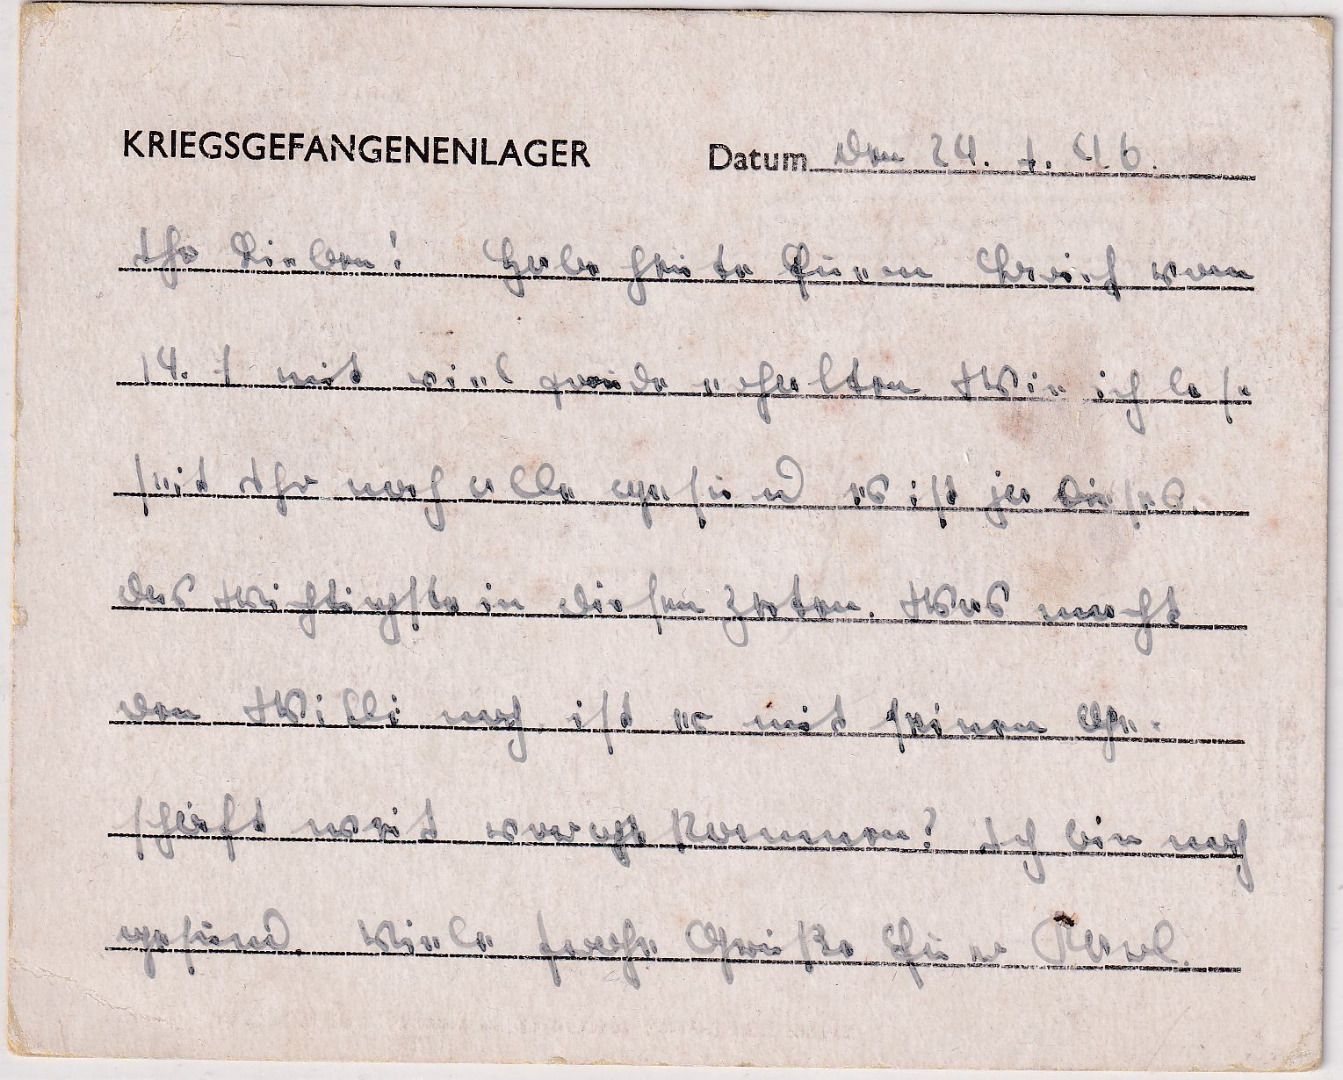 KRIEGSGEFANGENENLAGER Datum den 24. 1. 46.
Ihr Lieben! Habe heute Euren Brief vom
14. 1 mit viel Freude erhalten Wie ich lese
seit Ihr noch alle gesund es ist ja dieses
das Wichtigste in diesen Zeiten. Was macht
den Willi noch, ist er mit seinen Ge-
schäft weit vorge kommen? Ich bin noch
gesund. Viele frohe Grüße Euer Karl.